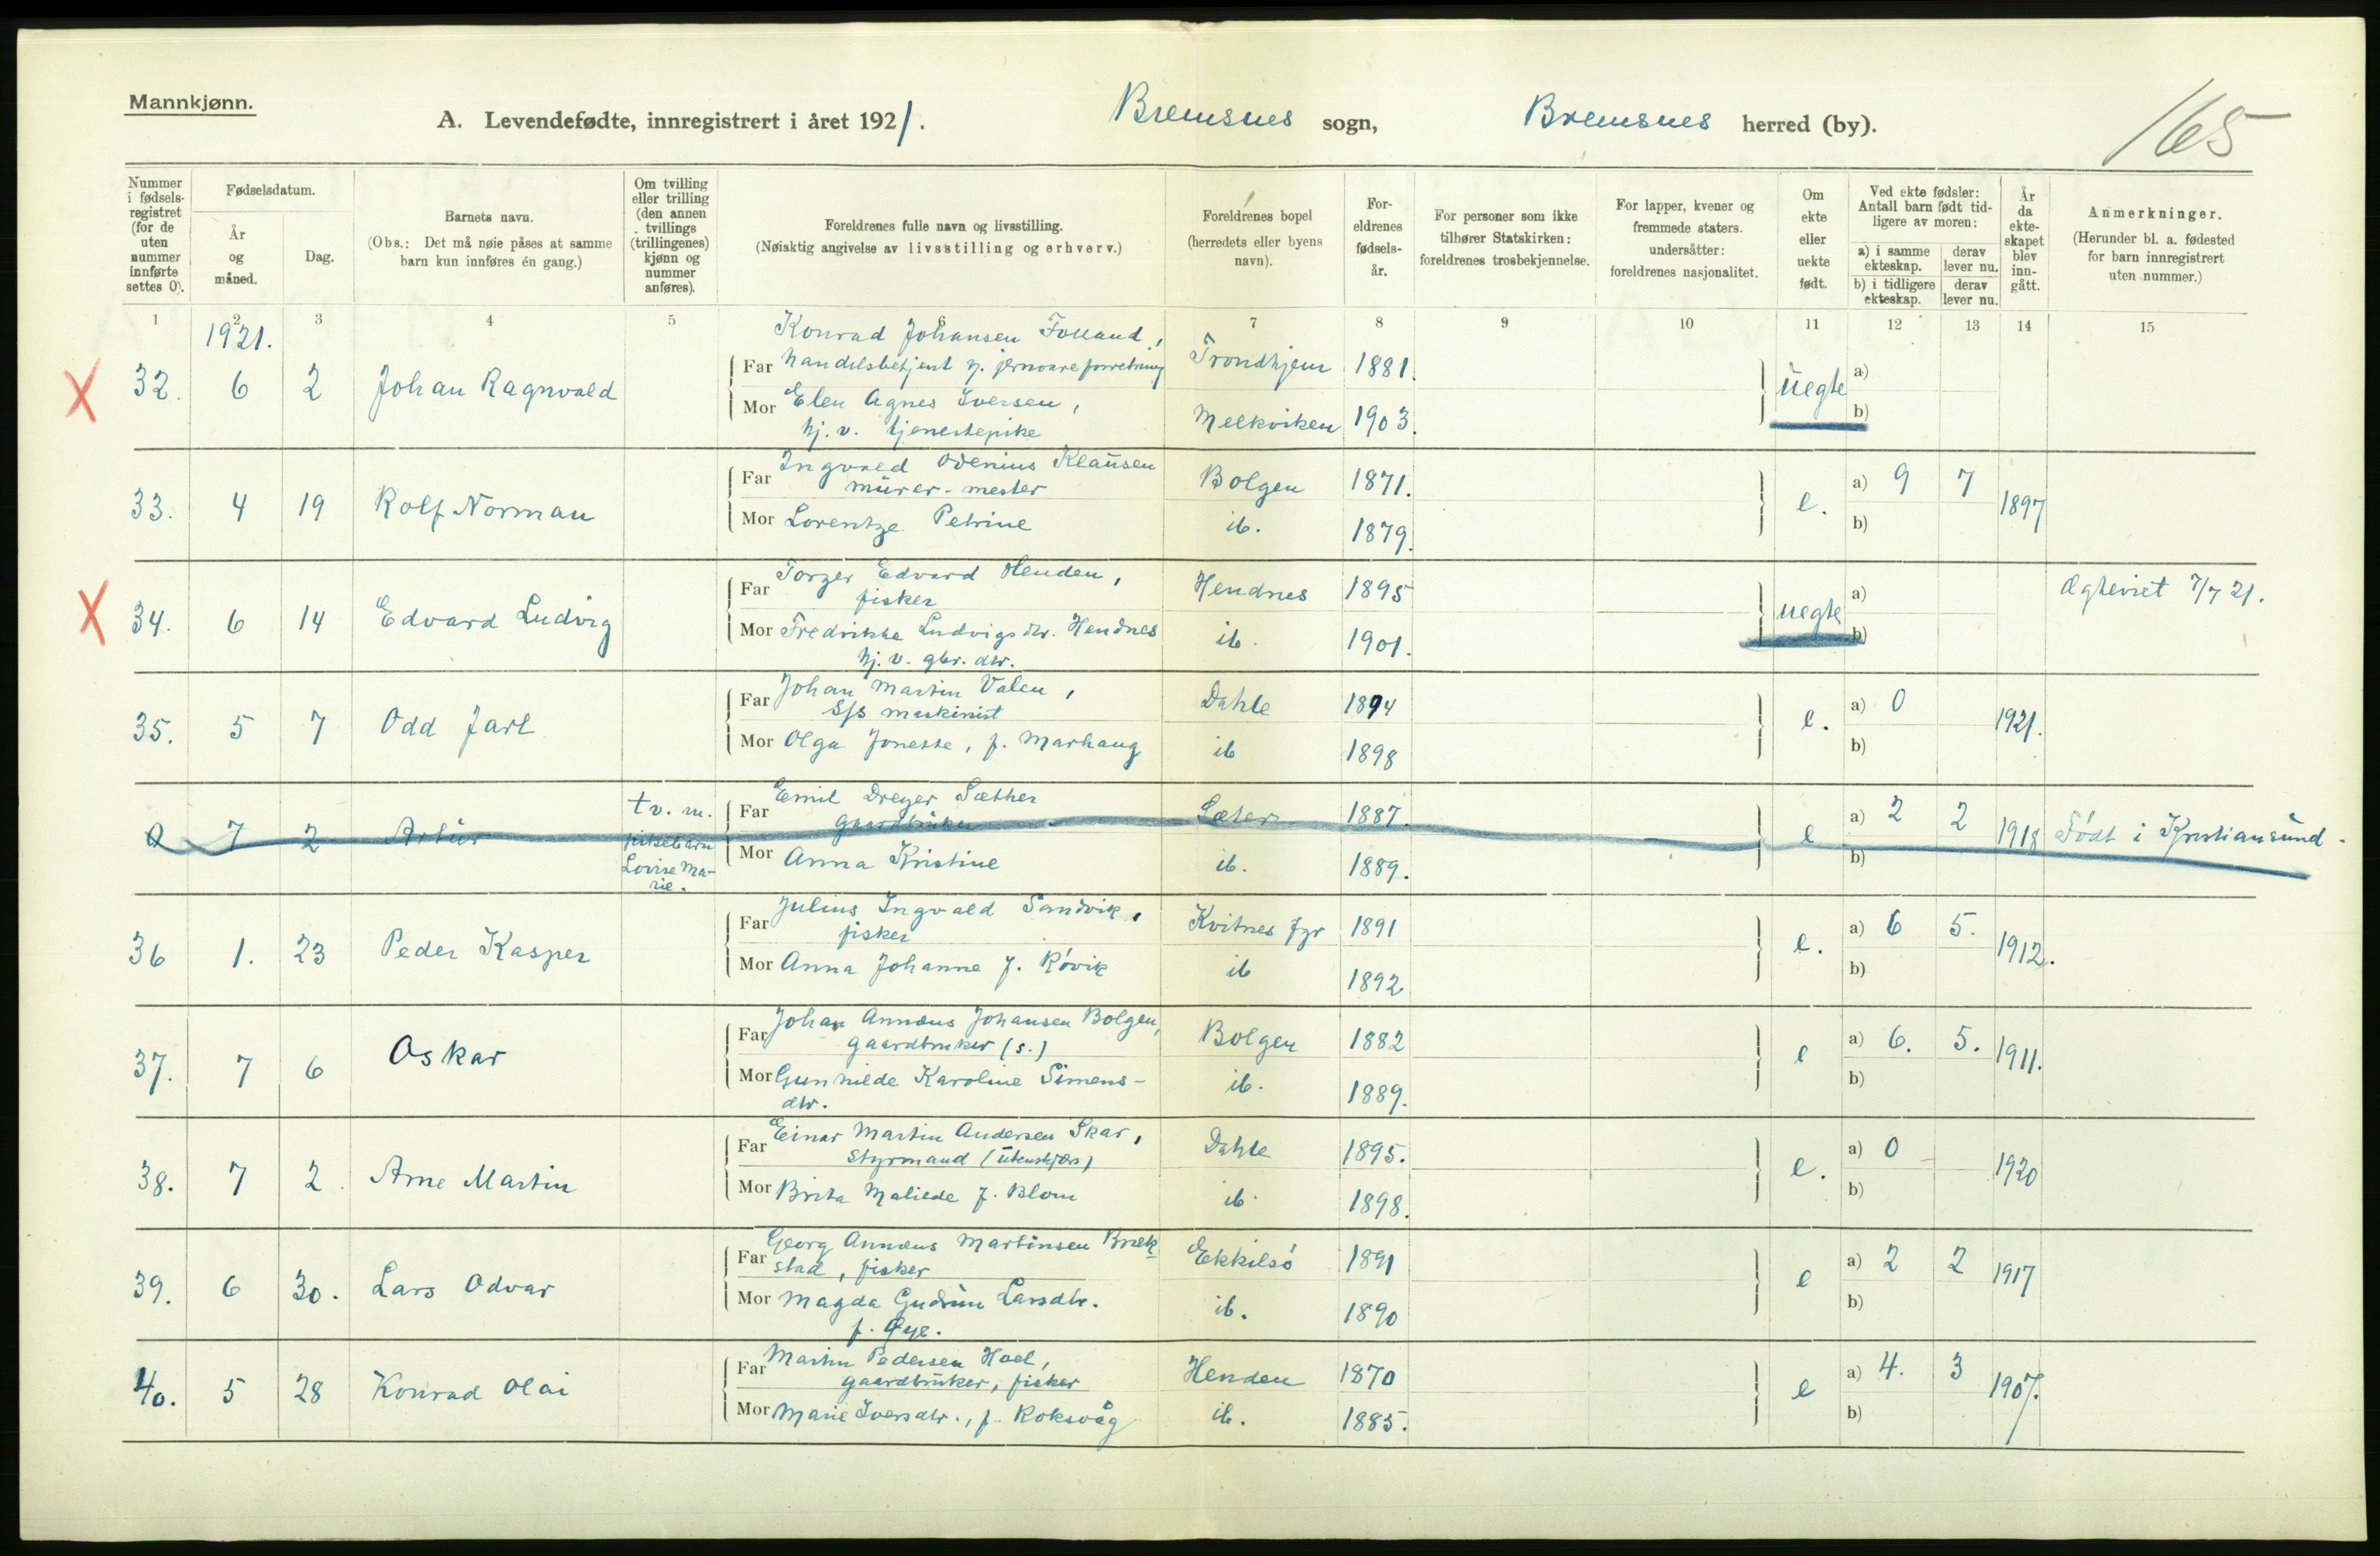 Mannkjønn.
A. Levendefødte, innregistrert i året 1921. Bremsnes sogn, Bremsnes herred (by). 165
Nummer i fødsels-registret (for de uten nummer innførte settes 0).
Fødselsdatum.
År og måned.
Dag.
Barnets navn.
(Obs.: Det må nøie påses at samme barn kun innføres én gang.)
Om tvilling eller trilling (den annen tvillings (trillingenes) kjønn og nummer anføres).
Foreldrenes fulle navn og livsstilling.
(Nøiaktig angivelse av livsstilling og erhverv.)
Foreldrenes bopel (herredets eller byens navn).
For-eldrenes fødsels-år.
For personer som ikke tilhører Statskirken: foreldrenes trosbekjennelse.
For lapper, kvener og fremmede staters undersåtter: foreldrenes nasjonalitet.
Om ekte eller uekte født.
Ved ekte fødsler: Antall barn født tid-ligere av moren:
a) i samme ekteskap. derav lever nu.
b) i tidligere ekteskap. derav lever nu.
År da ekte-skapet blev inn-gått.
Anmerkninger.
(Herunder bl. a. fødested for barn innregistrert uten nummer.)
1 2 3 4 5 6 7 8 9 10 11 12 13 14 15
1921.
X 32. 6 2 Johan Ragnvald
Konrad Johansen Folland,
Far handelsbetjent v. jernvareforretning Trondhjem 1881. uegte a)
Mor Elen Agnes Iversen, Melkviken 1903. b)
hj. v. tjenestepike
33. 4 19 Rolf Norman
Ingvald Odenius Klausen
Far murer-mester Bolgen 1871. e. a) 9 7 1897
Mor Lorentze Petrine ib. 1879. b)
X 34. 6 14 Edvard Ludvig
Torger Edvard Henden,
Far fisker Hendnes 1895 uegte a) Ægteviet 7/7 21.
Mor Fredrikke Ludvigsdtr. Hendnes ib. 1901. b)
hj. v. gbr. dtr.
35. 5 7 Odd Jarl
Johan Martin Valen,
Far S/S maskinist Dahle 1894 e. a) 0 1921.
Mor Olga Joneste, f. Marhaug ib 1898 b)
0 7 2 Artur tv. m. pikebarn Lovise Ma-rie.
Emil Dreyer Sæther
Far gaardbruker Sæter 1887. e a) 2 2 1918 Født i Kristiansund.
Mor Anna Kristine ib. 1889. b)
36 1. 23 Peder Kasper
Julius Ingvald Sandvik,
Far fisker Kvitnes fyr 1891 e. a) 6 5. 1912.
Mor Anna Johanne f. Røvik ib 1892 b)
37. 7 6 Oskar
Johan Annæus Johansen Bolgen,
Far gaardbruker (s.) Bolgen 1882 e a) 6. 5. 1911.
Mor Gunhilde Karoline Simens- ib. 1889. b)
dtr.
38. 7 2. Arne Martin
Einar Martin Andersen Skar,
Far styrmand (utenskjærs) Dahle 1895. e. a) 0 1920
Mor Brita Malilde f. Blom ib. 1898. b)
39. 6 30. Lars Odvar
Georg Annæus Martinsen Bræk-
Far stad, fisker Ekkilsö 1891 e a) 2 2 1917
Mor Magda Gudrun Larsdtr. ib. 1890 b)
f. Øye.
40. 5 28 Konrad Olai
Martin Pedersen Hoel,
Far gaardbruker, fisker Henden 1870 e a) 4. 3 1907.
Mor Marie Iversdtr., f. Roksvåg ib. 1885. b)